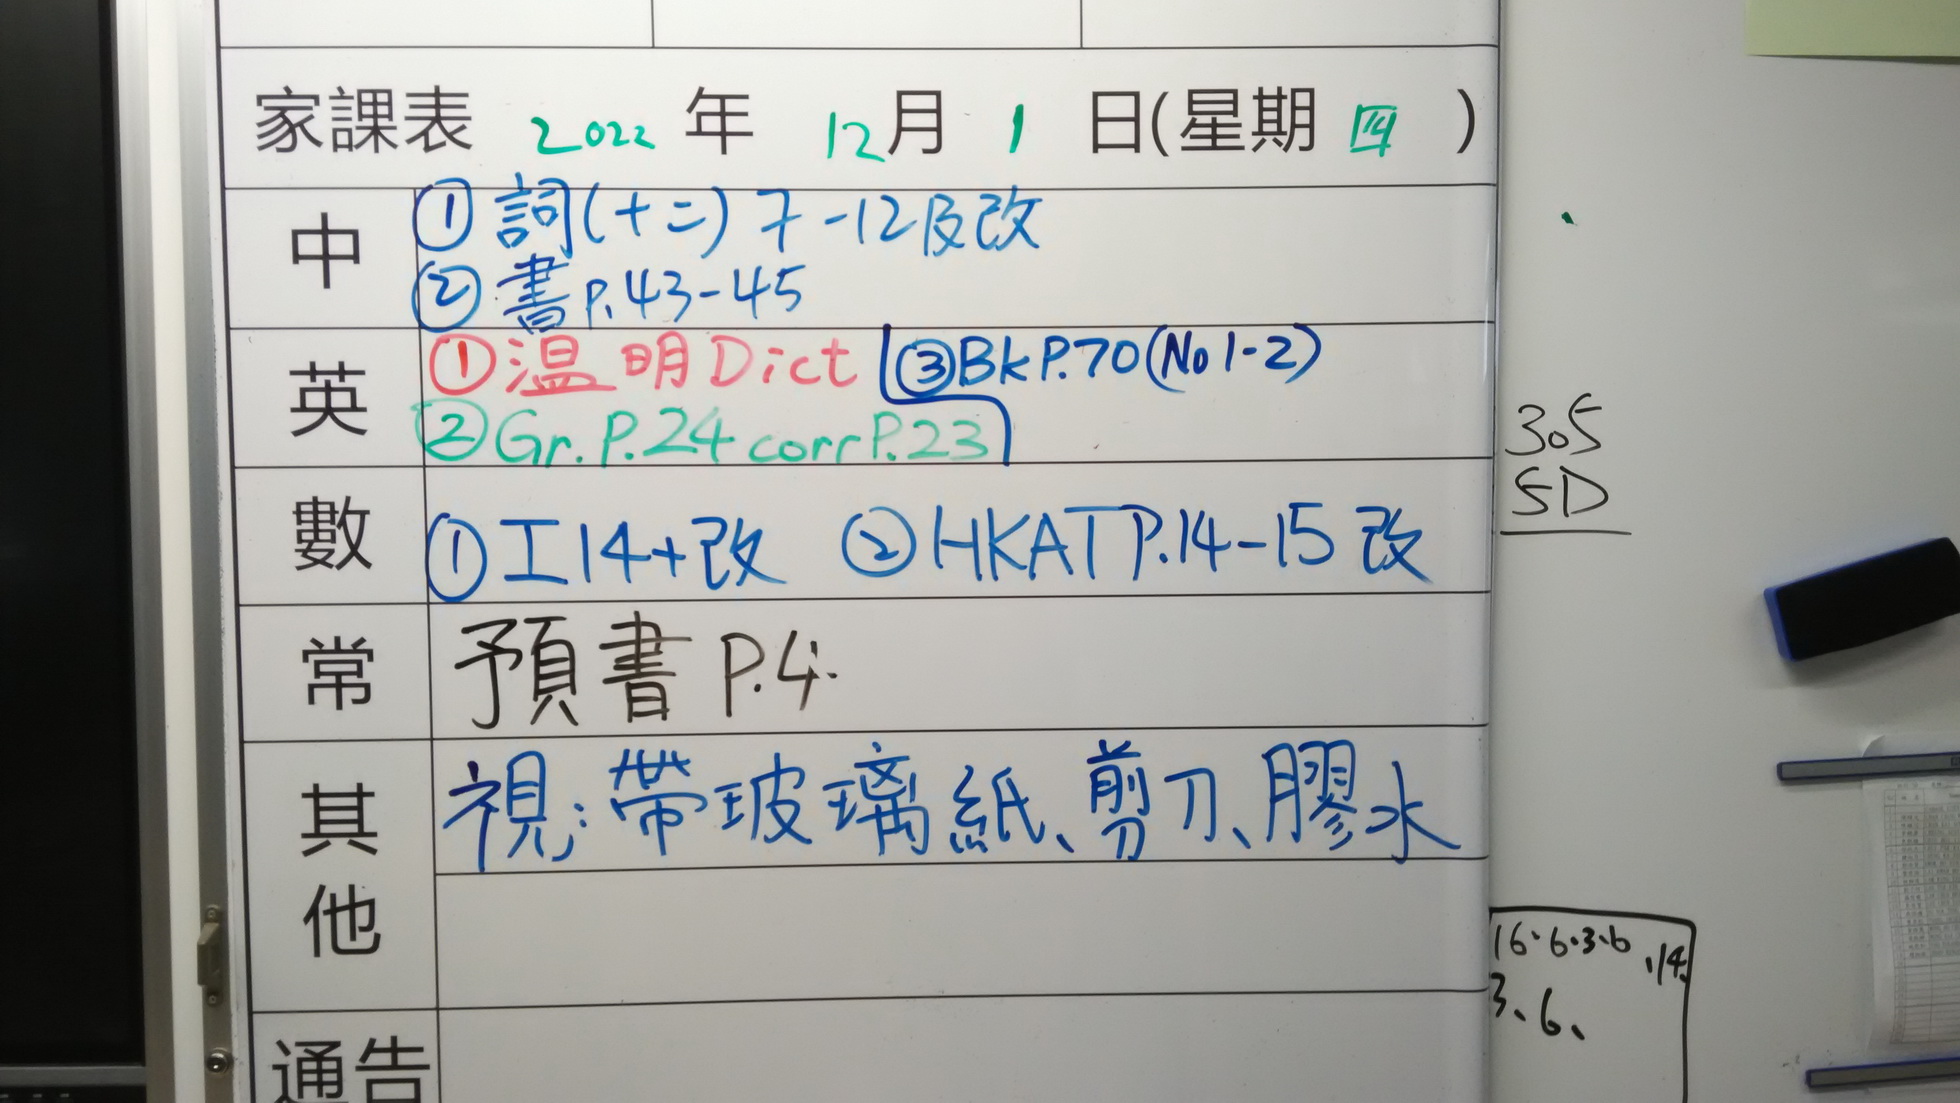 家課表 2022 年 12 月 1 日(星期 四 )
中
① 詞(十二) 7-12及改
② 書P.43-45
英
① 温 明 Dict ③BkP.70(No 1-2)
② Gr.P.24 corrP.23
數
① 工14+改 ② HKAT P.14-15 改
常
預書 P.4.
其他
視:帶玻璃紙、剪刀、膠水
通告
305
5D
16.6.3.6
.14.
3、6、